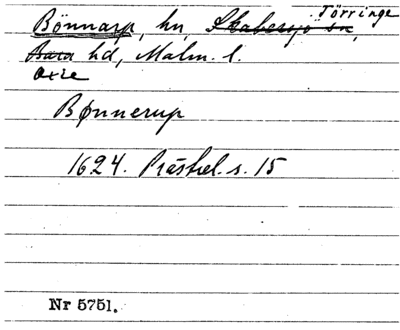 Törringe
Bönnarp, hn, Skabersjö sn,
Bara hd, Malm. l.
Oxie
Bønnerup
1624. Prästrel. s. 15
Nr 5751.